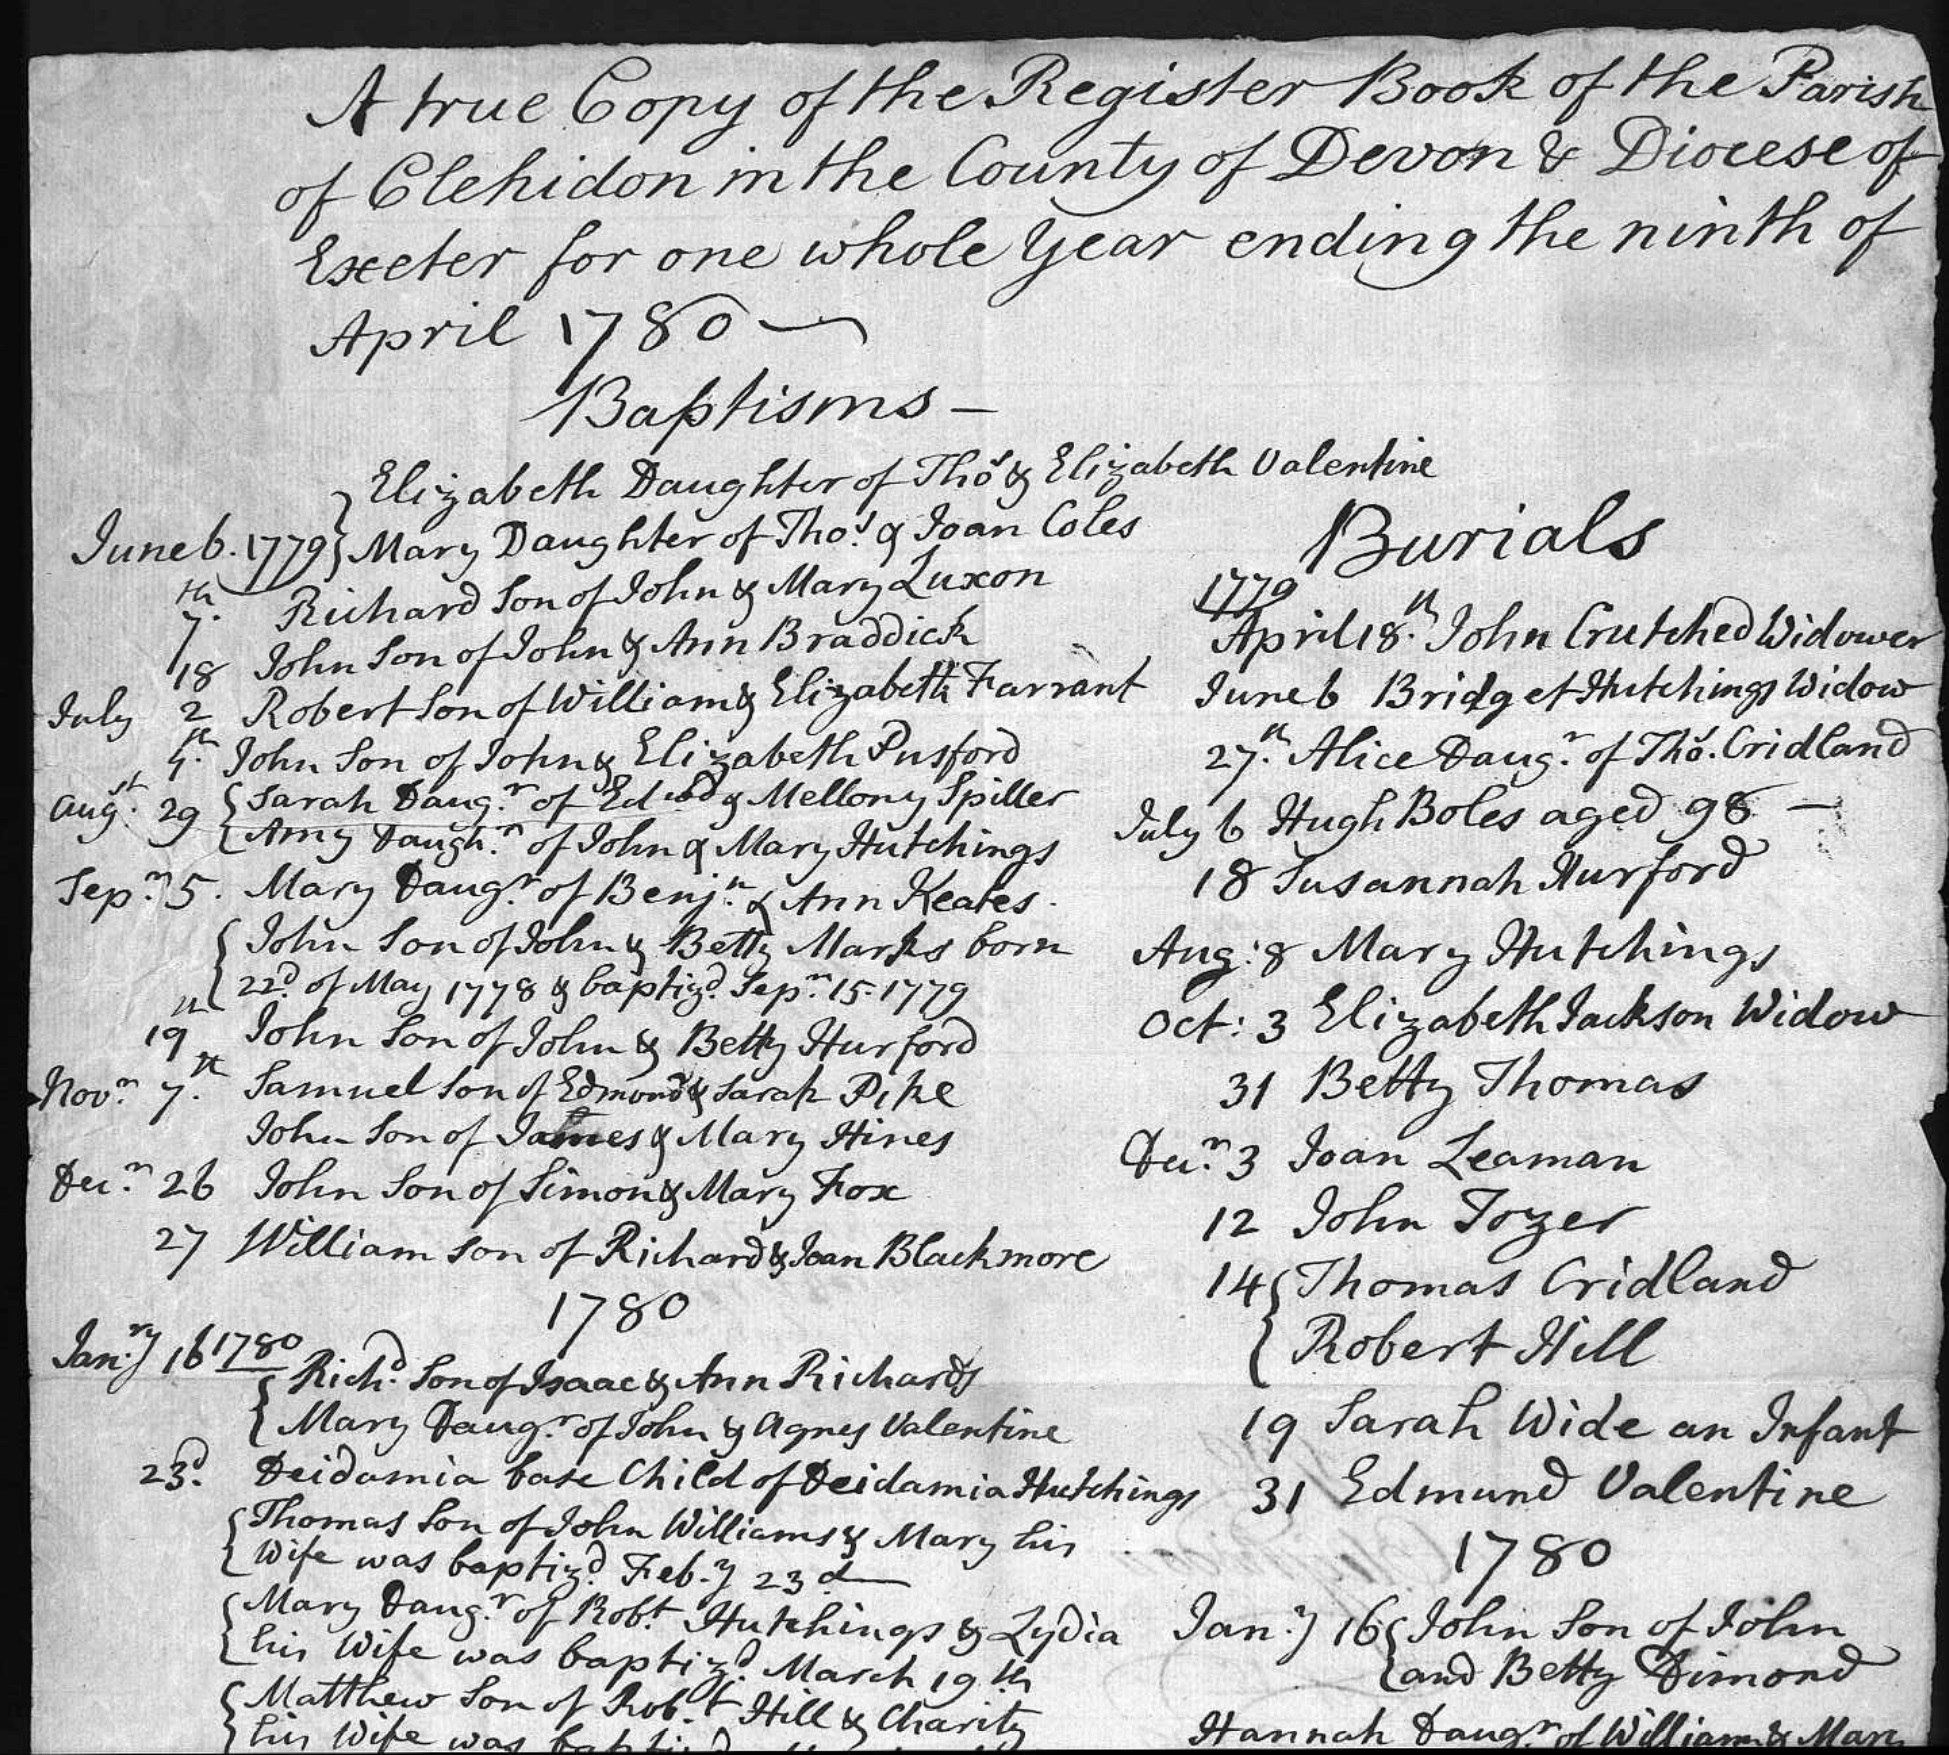 A true Copy of the Register Book of the Parish
of Clehidon in the County of Devon & Diocese of
Exeter for one whole Year ending the ninth of
April 1780
Baptisms -
Elizabeth Daughter of Thos & Elizabeth Valentine
June 6. 1779 Mary Daughter of Thos. & Joan Coles
7.th Richard Son of John & Mary Luxon
18 John Son of John & Ann Braddick
July 2 Robert Son of William & Elizabeth Farrant
4.th John Son of John & Elizabeth Pusford
Augst. 29 Sarah Daugr. of Edwd & Mellony Spiller
Amy Daughr. of John & Mary Hutchings
Sepr. 5. Mary Daugr. of Benjn. & Ann Keates.
John Son of John & Betty Marks born
22d. of May 1778 & baptizd. Sepr. 15. 1779
19th John Son of John & Betty Hurford
Novr. 7.th Samuel Son of Edmond & Sarah Pike
John Son of James & Mary Hines
Decr. 26 John Son of Simon & Mary Fox
27 William Son of Richard & Joan Blackmore
1780
Janry. 16 1780
Richd. Son of Isaac & Ann Richards
Mary Daugr. of John & Agnes Valentine
23d. Deidamia base Child of Deidamia Hutchings
Thomas Son of John Williams & Mary his
Wife was baptizd. Feb.y 23d
Mary Daugr. of Robt. Hutchings & Lydia
his Wife was baptizd. March 19th
Matthew Son of Robt. Hill & Charity
his Wife was
Burials
1779
April 18.th John Crutched Widower
June 6 Bridget Hutchings Widow
27.th Alice Daugr. of Thos. Cridland
July 6 Hugh Boles aged 98 -
18 Susannah Hurford
Aug: 8 Mary Hutchings
Oct: 3 Elizabeth Jackson Widow
31 Betty Thomas
Decr. 3 Joan Leaman
12 John Tozer
14 Thomas Cridland
Robert Hill
19 Sarah Wide an Infant
31 Edmund Valentine
1780
Jan.y 16 John Son of John
and Betty Dimond
Hannah Daugr. of William & Mary